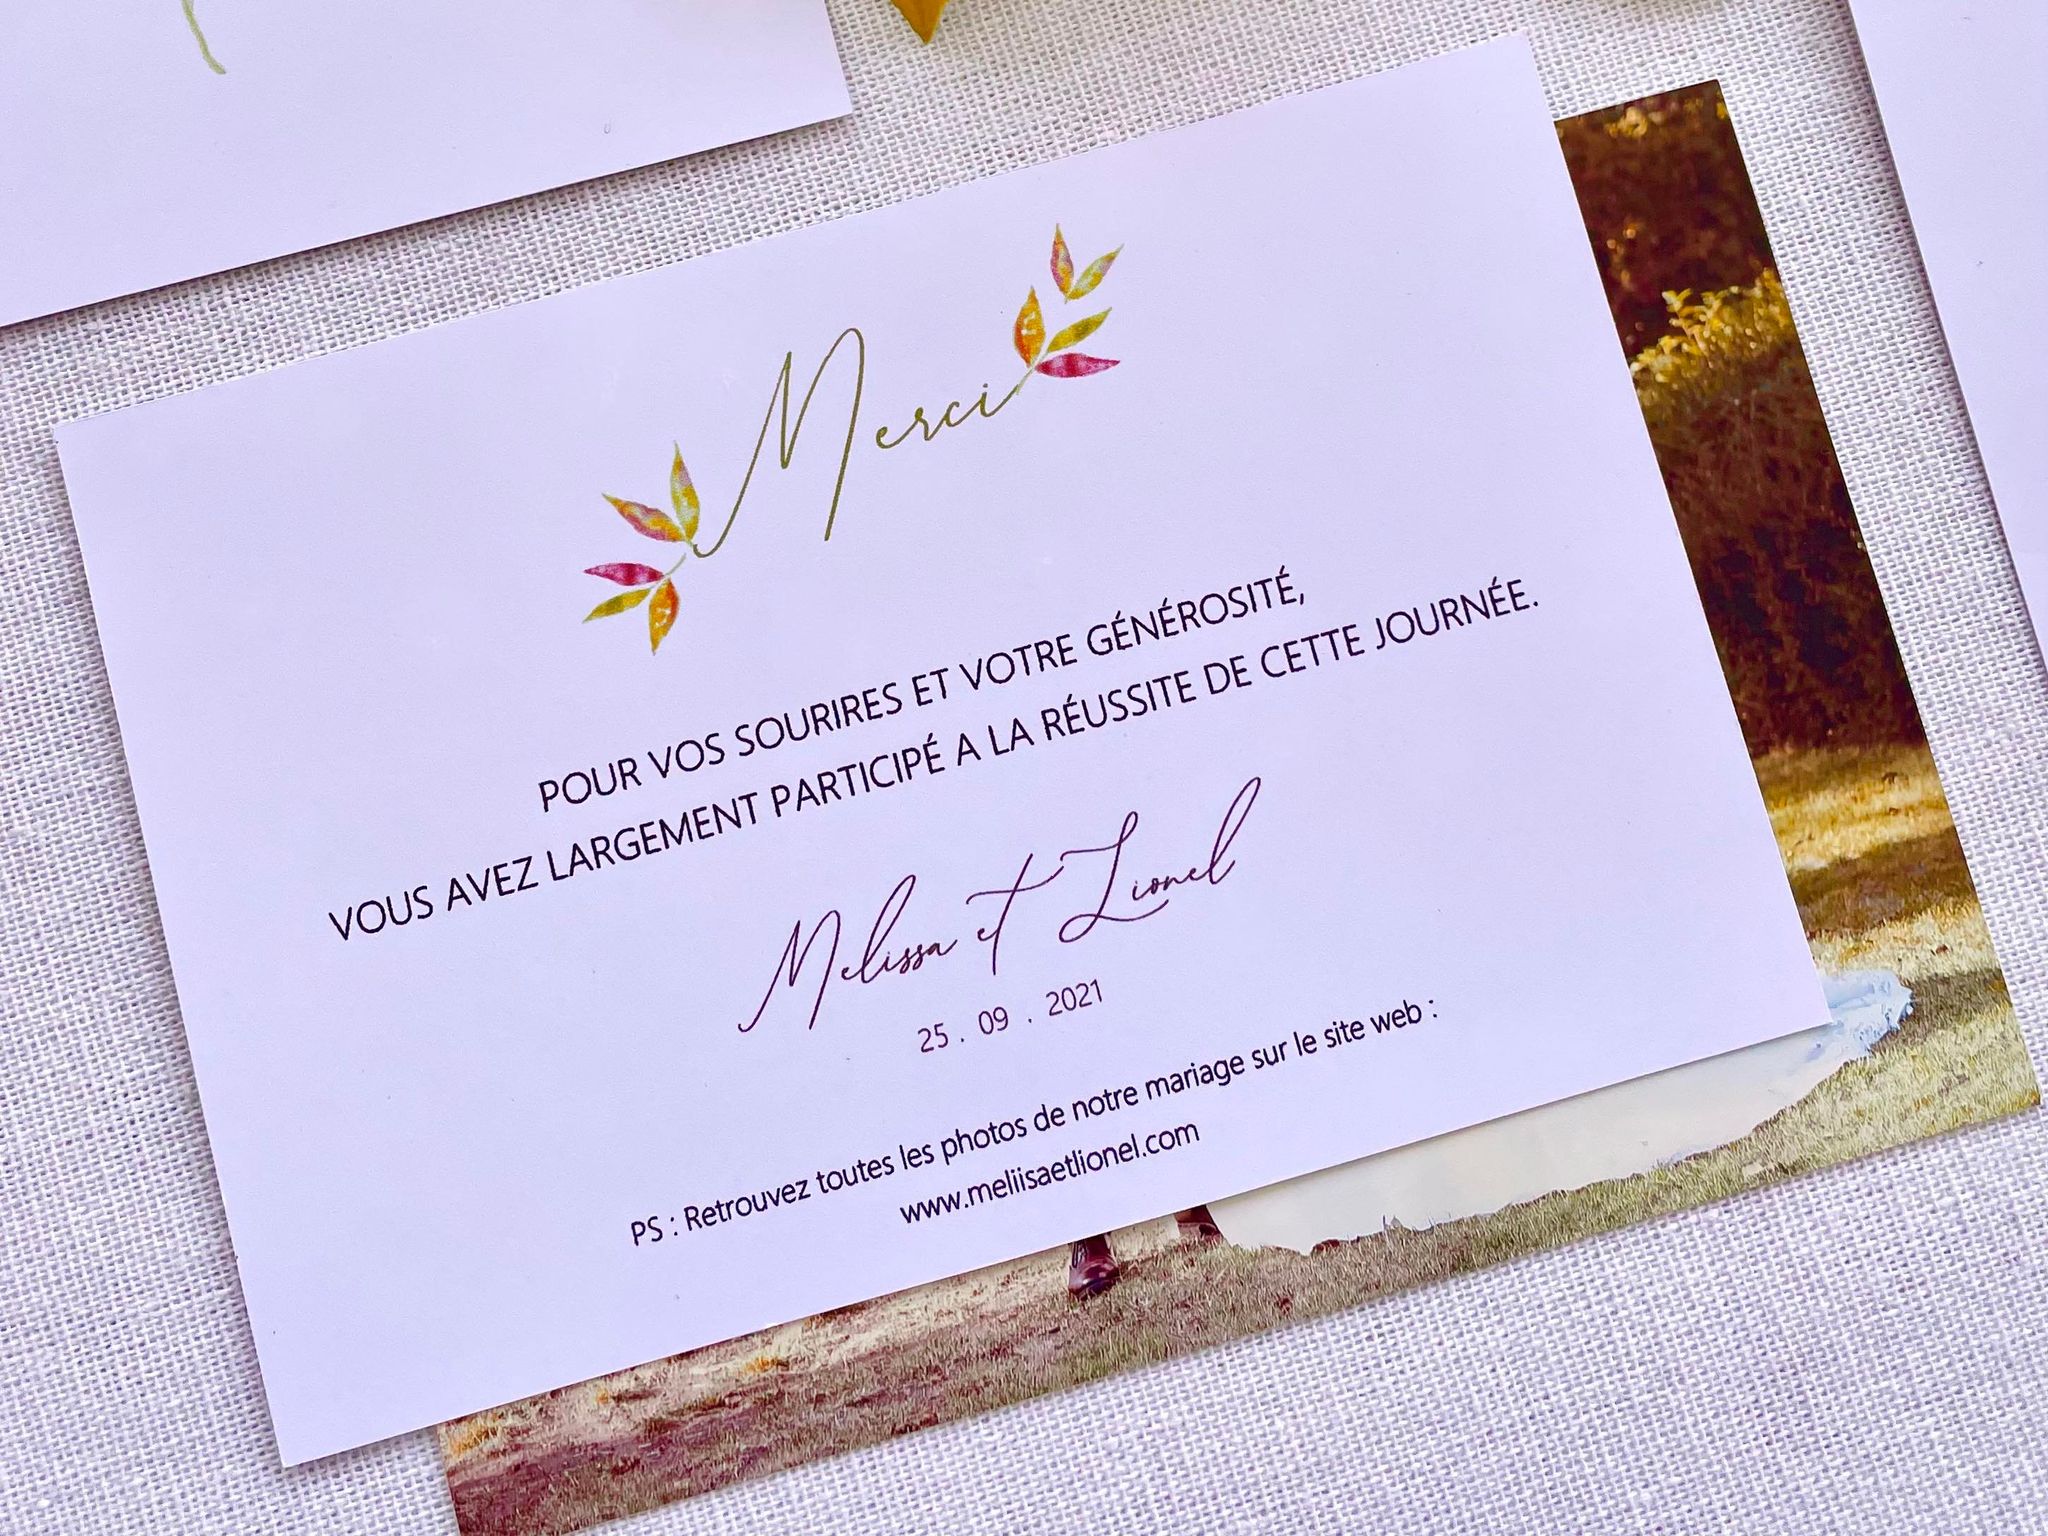 Merci
POUR VOS SOURIRES ET VOTRE GÉNÉROSITÉ,
VOUS AVEZ LARGEMENT PARTICIPÉ A LA RÉUSSITE DE CETTE JOURNÉE.
Melissa et Lionel
25 . 09 . 2021
PS : Retrouvez toutes les photos de notre mariage sur le site web :
www.meliisaetlionel.com